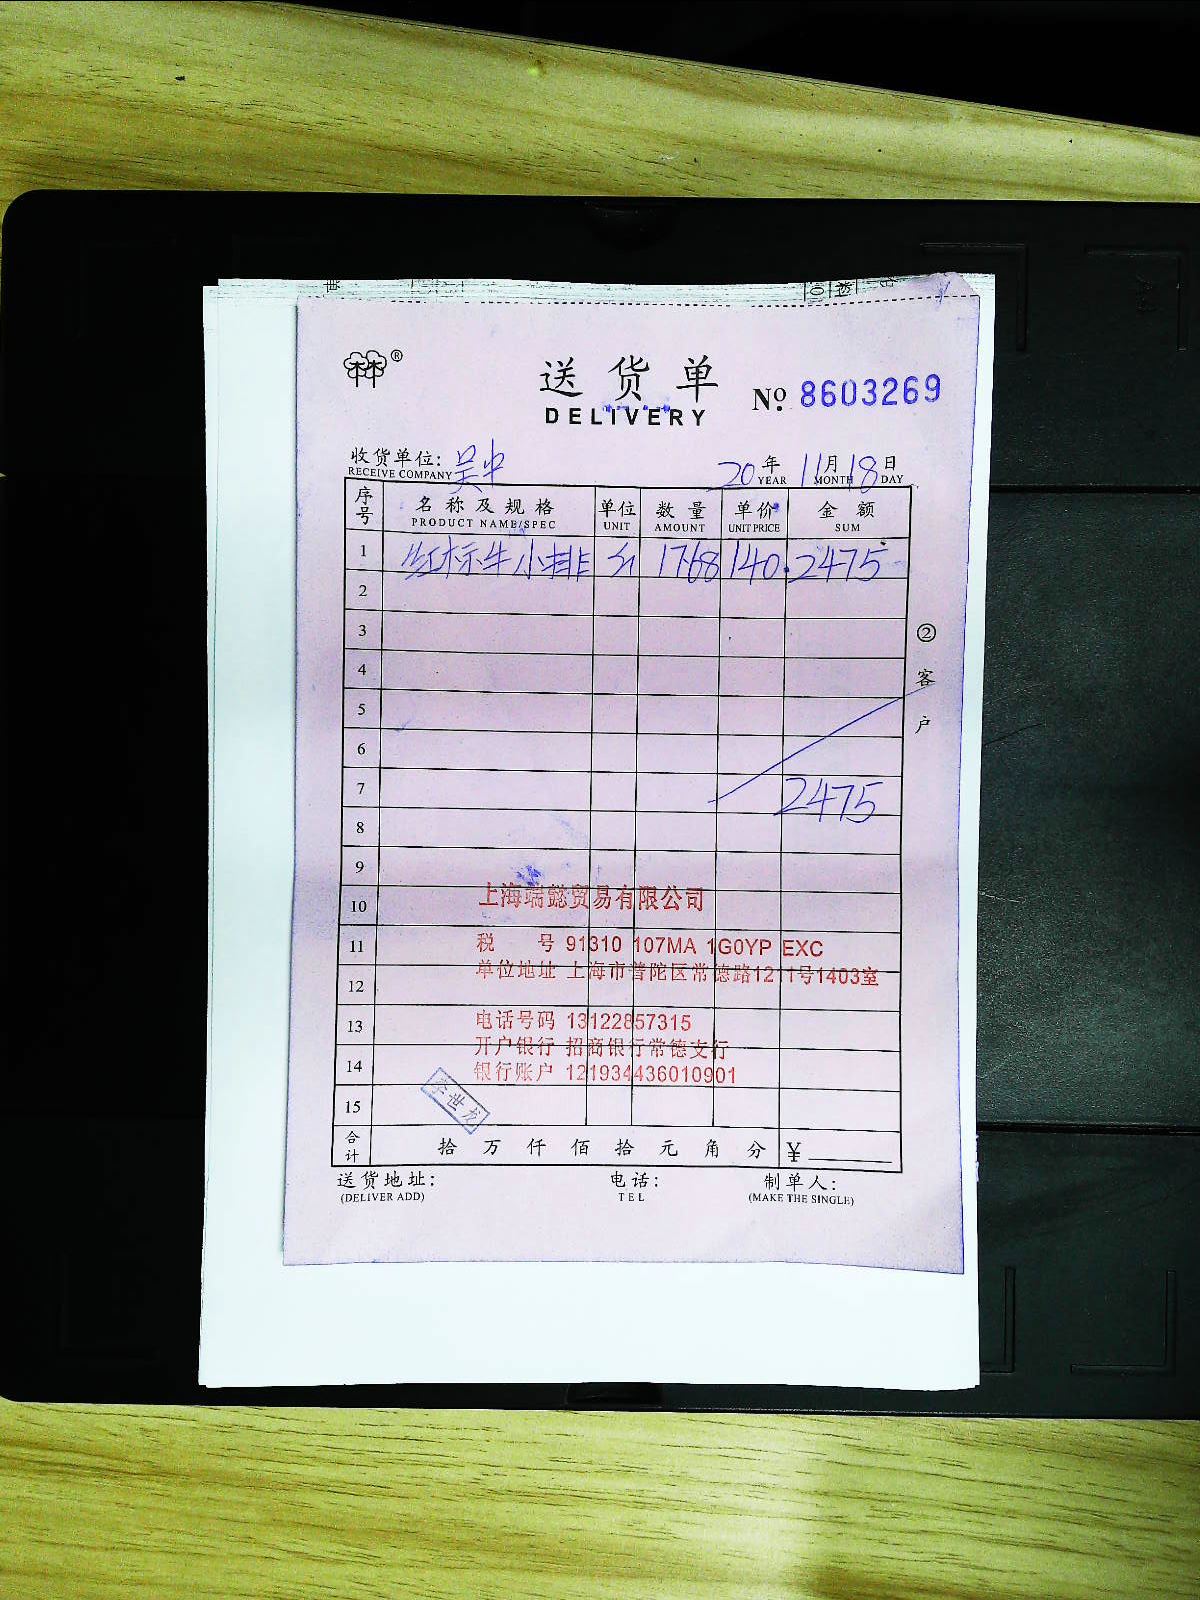 林林®
送货单
DELIVERY
№ 8603269
收货单位: 吴中
RECEIVE COMPANY
20 年 11 月 18 日
YEAR MONTH DAY
序号 名称及规格 单位 数量 单价 金额
PRODUCT NAME/SPEC UNIT AMOUNT UNIT PRICE SUM
1 红标牛小排 斤 1768 140. 2475
2
3
4
5
6
7 2475
8
9
10
11
12
13
14
15
② 客户
上海端懿贸易有限公司
税 号 91310 107MA 1G0YP EXC
单位地址 上海市普陀区常德路1211号1403室
电话号码 13122857315
开户银行 招商银行常德支行
银行账户 121934436010901
李世龙
合计 拾 万 仟 佰 拾 元 角 分 ¥
送货地址: 电话: 制单人:
(DELIVER ADD) TEL (MAKE THE SINGLE)